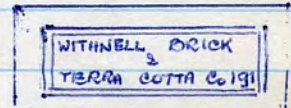 WITHNELL BRICK
&
TERRA COTTA Co 191